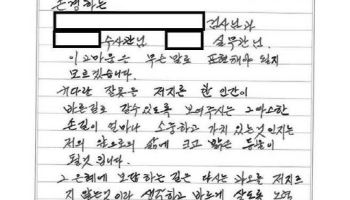 존경하는
검사님과
수사관님 실무관님.
이 고마움은 무슨 말로 표현해야 될지
모르겠습니다.
커다란 잘못을 저지른 한 인간이
바른길로 갈수 있도록 보여주시는 그 따스한
손길이 얼마나 소중하고 가치 있는것 인지는
저의 앞으로의 삶에 크고 밝은 등불이
될것 입니다.
그 은혜에 보답하는 길은 다시는 과오를 저지르
지 않는것 이라 생각하고 바르게 살도록 노력